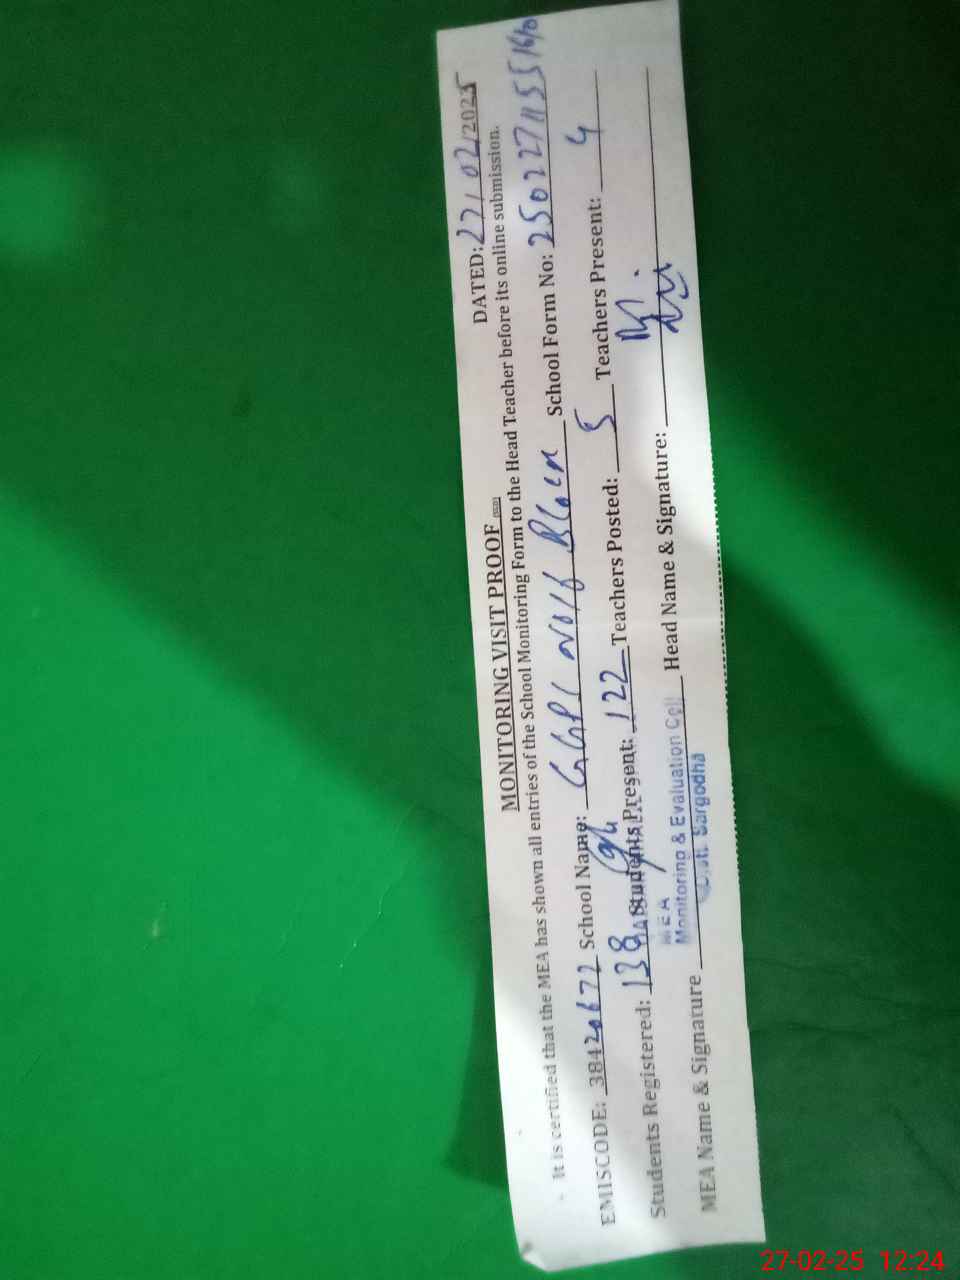 MONITORING VISIT PROOF (SED)
DATED: 27/02/2025
It is certified that the MEA has shown all entries of the School Monitoring Form to the Head Teacher before its online submission.
EMISCODE: 38420672 School Name: GGPS Block School Form No: 250227115516
Students Registered: 138 Students Present: 122 Teachers Posted: 5 Teachers Present: 4
MEA Name & Signature Head Name & Signature:
MEA
Monitoring & Evaluation Cell
Distt. Sargodha
27-02-25 12:24